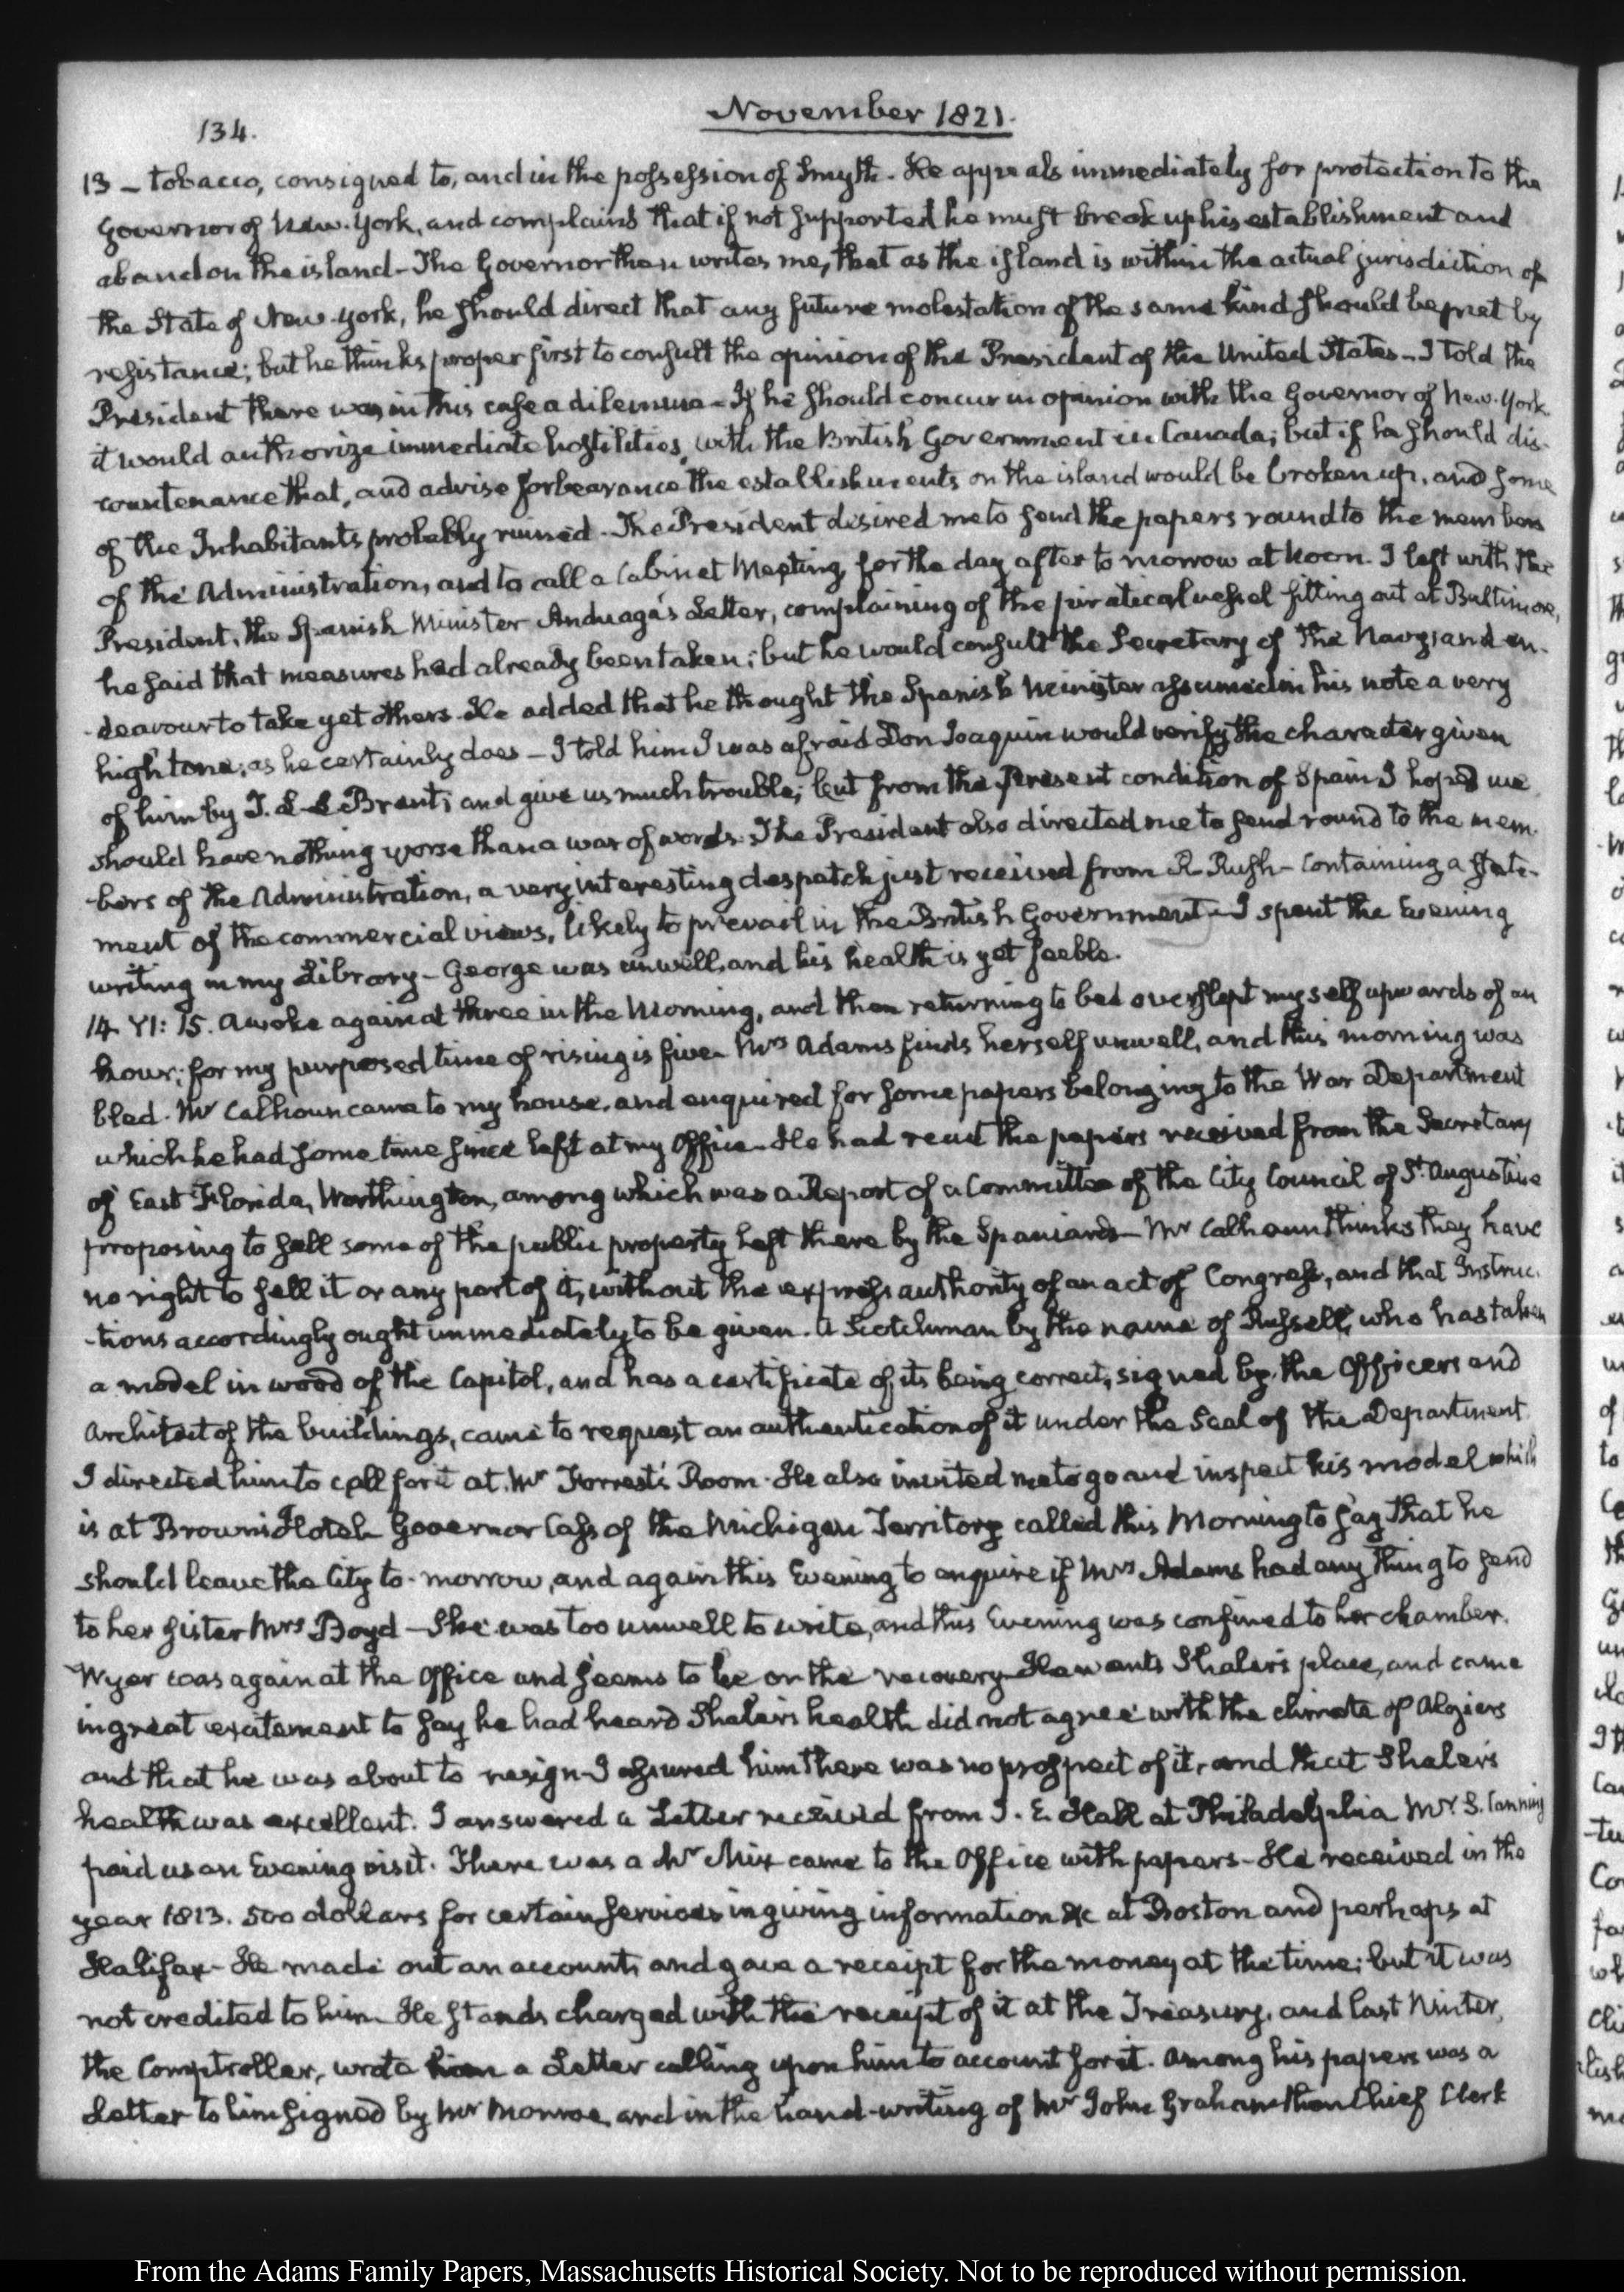 134.
November 1821.
13 – tobacco, consigned to, and in the possession of Smyth. He appeals immediately for protection to the
Governor of New-York, and complains that if not supported he must break up his establishment and
abandon the island – The Governor then writes me, that as the island is within the actual jurisdiction of
the State of New-York, he should direct that any future molestation of the same kind should be met by
resistance; but he thinks proper first to consult the opinion of the President of the United States – I told the
President there was in this case a dilemma – If he should concur in opinion with the Governor of New-York.
it would authorize immediate hostilities, with the British Government in Canada; but if he should dis-
countenance that, and advise forbearance the establishments on the island would be broken up, and some
of the Inhabitants probably ruined. The President desired me to send the papers round to the members
of the Administration, and to call a Cabinet Meeting, for the day after to morrow at Noon. I left with the
President, the Spanish Minister Anduaga's Letter, complaining of the piratical vessel fitting out at Baltimore,
he said that measures had already been taken; but he would consult the Secretary of the Navy; and en-
-deavour to take yet others. He added that he thought the Spanish Minister assumed in his note a very
high tone; as he certainly does – I told him I was afraid Don Joaquin would verify the character given
of him by T. L. L. Brent; and give us much trouble; but from the present condition of Spain I hoped we
should have nothing worse than a war of words. The President also directed me to send round to the mem-
-bers of the Administration, a very interesting despatch just received from R. Rush – containing a state-
ment of the commercial views, likely to prevail in the British Government – I spent the Evening
writing in my Library – George was unwell, and his health is yet feeble.
14. VI: 15. Awoke again at three in the Morning, and then returning to bed overslept myself upwards of an
hour; for my purposed time of rising is five – Mrs Adams finds herself unwell, and this morning was
bled. Mr Calhoun came to my house, and enquired for some papers belonging to the War Department
which he had some time since left at my Office – He had read the papers received from the Secretary
of East Florida, Worthington, among which was a Report of a Committee of the City Council of St. Augustine
proposing to sell some of the public property left there by the Spaniards – Mr Calhoun thinks they have
no right to sell it or any part of it, without the express authority of an act of Congress, and that Instruc-
-tions accordingly ought immediately to be given. A Scotchman by the name of Russell, who has taken
a model in wood of the Capitol, and has a certificate of its being correct, signed by the Officers and
Architect of the buildings, came to request an authentication of it under the Seal of the Department.
I directed him to call for it at Mr Forrest's Room. He also invited me to go and inspect his model which
is at Brown's Hotel. Governor Cass of the Michigan Territory called this Morning to say that he
should leave the City to-morrow, and again this Evening to enquire if Mrs Adams had any thing to send
to her Sister Mrs Boyd – She was too unwell to write, and this Evening was confined to her chamber.
Wyer was again at the Office and seems to be on the recovery – He wants Shaler's place, and came
in great excitement to say he had heard Shaler's health did not agree with the climate of Algiers
and that he was about to resign – I assured him there was no prospect of it, and that Shaler's
health was excellent. I answered a Letter received from J. E. Hall at Philadelphia Mr. S. Canning
paid us an Evening visit. There was a Mr Mix came to the Office with papers – He received in the
year 1813. 500 dollars for certain services in giving information &c at Boston and perhaps at
Halifax – He made out an account, and gave a receipt for the money at the time; but it was
not credited to him – He stands charged with the receipt of it at the Treasury, and last Winter,
the Comptroller, wrote him a Letter calling upon him to account for it. Among his papers was a
Letter to him signed by Mr Monroe, and in the hand-writing of Mr John Graham then Chief Clerk
From the Adams Family Papers, Massachusetts Historical Society. Not to be reproduced without permission.